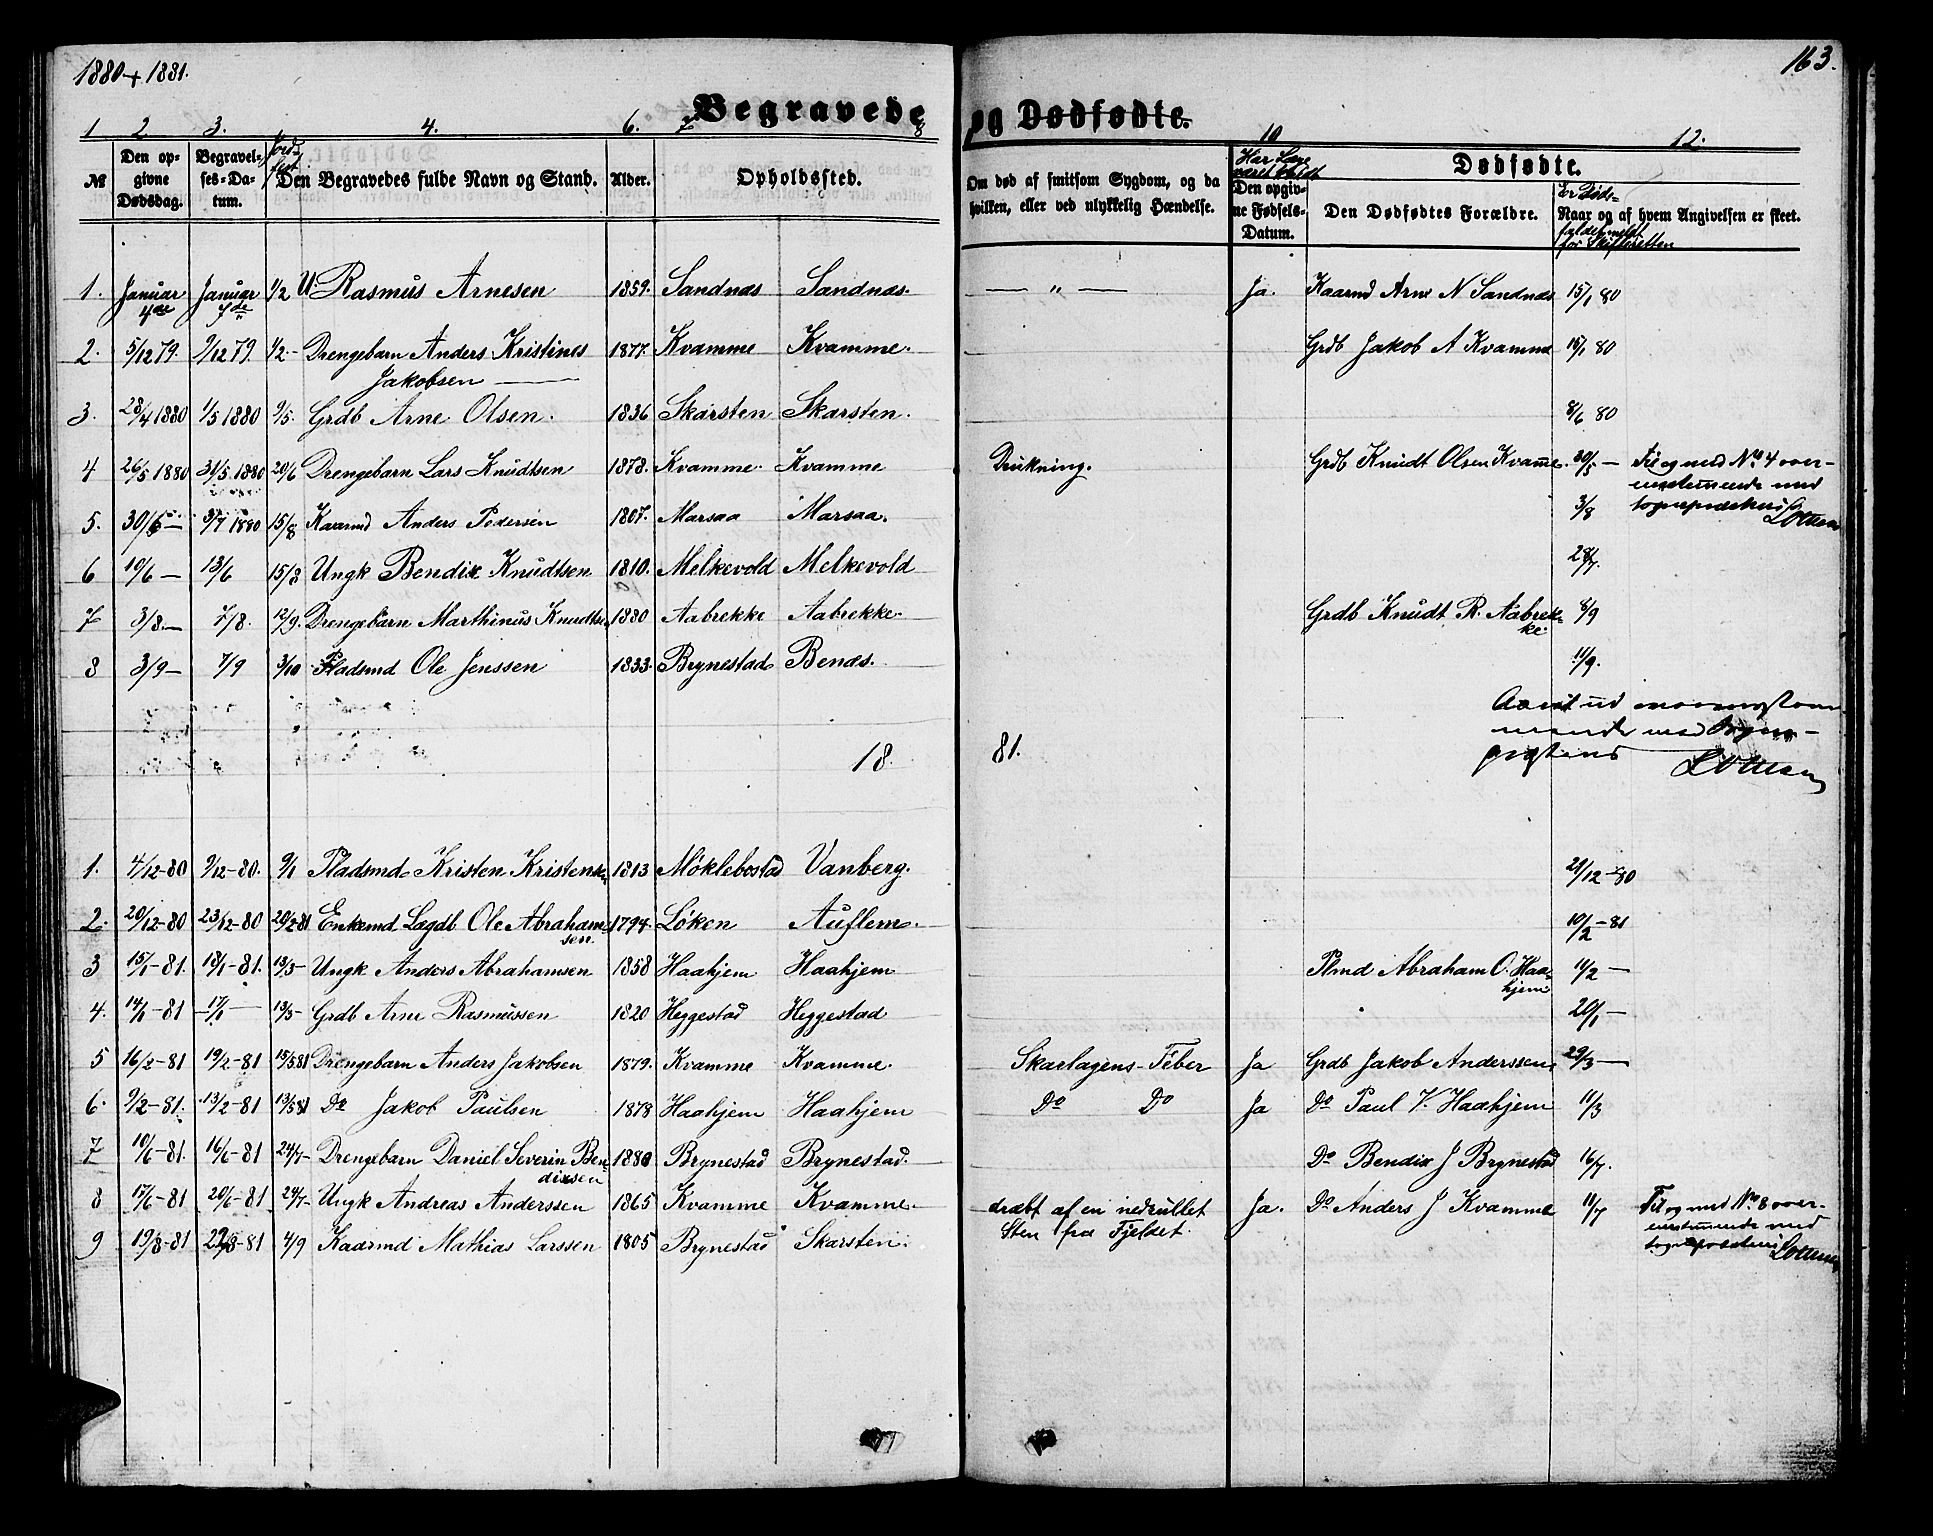 1880 + 1881.
163.
Begravede og Dødfødte.
1 2 3. 4. 6. 7 8 10 12.
№ Den opgivne Dødsdag. Begravelses-Datum. Jordfæst. Den Begravedes fulde Navn og Stand. Alder. Opholdssted. Om død af smitsom Sygdom, og da hvilken, eller ved ulykkelig Hændelse. Har Læge været tilkaldt Den opgivne Fødsels-Datum. Dødfødte. Den Dødfødtes Forældre. Er Døds- Naar og af hvem Angivelsen er skeet. faldet meldt for Skifteretten
1. Januar 4de Januar 7de 1/2 U: Rasmus Arnesen 1859. Sandnæs Sandnæs. — " — Ja. Kaarmd Arne N Sandnæs 15/1 80
2. 5/12 79. 9/12 79. 1/2 - Drengebarn Anders Kristines 1877. Kvamme Kvamme. Grdb Jakob A Kvamme 15/1 80
Jakobsen
3. 28/4 1880 1/5 1880 9/5. Grdb Arne Olsen. 1836 Skarsten Skarsten. 8/6 80
4 26/5 1880 31/5 1880 20/6 Drengebarn Lars Knudtsen 1878. Kvamme. Kvamme Drukning. Grdb Knudt Olsen Kvamme. 30/5 — Til og med No 4 over-
ensstemmende med
5. 30/6 — 3/7 1880 15/8 Kaarmd Anders Pedersen 1807. Marsaa Marsaa. 3/8
6 10/6 — 13/6 15/8 Ungk Bendix Knudtsen 1810. Melkevold Melkevold 28/7.
7 3/8. — 7/8. 12/9. Drengebarn Marthinus Knudtsen 1880 Aabrekke Aabrekke. Grdb Knudt R. Aabrek-
ke 8/9
8 3/9 — 7/9 3/10 Pladsmd Ole Jenssen 1833. Brynestad Benæs. 11/9.
18 81.
1. 4/12-80 9/12-80. 9/1 Pladsmd Kristen Kristensen 1813 Møklebostad Vanberg. 21/12-80
2. 20/12-80 23/12-80 20/2-81 Enkemd Lægdb Ole Abraham-
sen. 1794. Løken Auflem. 10/2-81
3 15/1-81. 18/1-81. 13/3- Ungk Anders Abrahamsen 1858 Haahjem Haahjem Plmd Abraham O. Haa-
hjem 11/2 —
4. 14/1-81 17/1 — 13/3- Grdb Arne Rasmussen 1820 Heggestad Heggestad 20/1 —
5 16/2-81 19/2-81 15/5 81 Drengebarn Anders Jakobsen 1879. Kvamme Kvamme. Skarlagens-Feber Ja Grdb Jakob Anderssen 29/3 —
6. 9/2-81. 13/2-81 13/3 81 Do Jakob Paulsen 1878 Haahjem Haahjem Do Do Ja Do Paul V. Haahjem 11/3
7 10/6-81. 16/6-81 24/7- Drengebarn Daniel Severin Ben-
dixsen 1880 Brynestad Brynestad. Do Bendix J Brynestad 16/7.
8 17/6-81 20/6-81 24/7- Ungk Andreas Anderssen 1865 Kvamme Kvamme. dræbt af en nedrullet Ja. Do Anders J Kvamme 11/7 Til og med No 8 over-
Sten fra Fjeldet. ensstemmende med
9 19/8-81 22/8-81 4/9 Kaarmd Mathias Larssen 1805 Brynestad Skarsten.